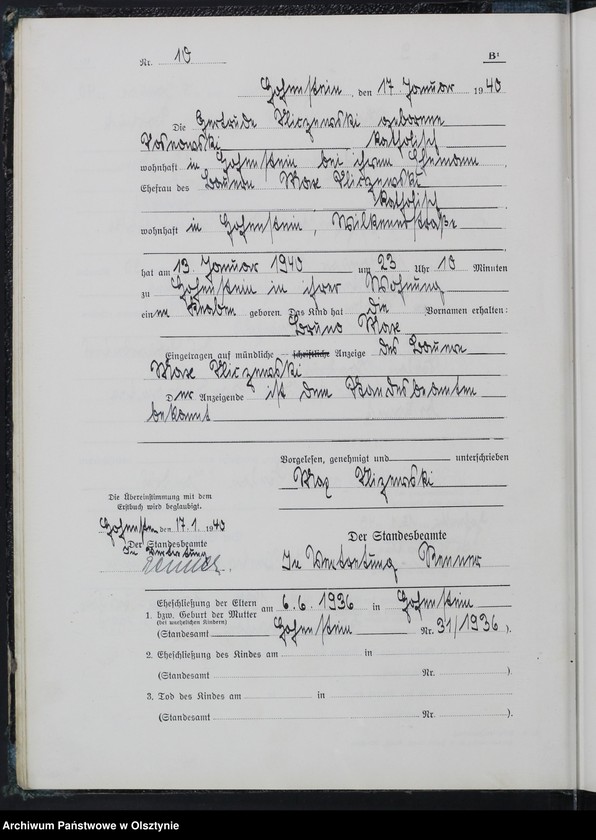 Nr. 10 B¹
Hohenstein, den 17. Januar 1940
Die Gertrude geborene
katholisch
wohnhaft in Hohenstein bei ihrem Ehemann,
Ehefrau des Bauern Max
katholisch
wohnhaft in Hohenstein, Wilkenerstraße
hat am 13. Januar 1940 um 23 Uhr 10 Minuten
zu Hohenstein in ihrer Wohnung
einen Knaben geboren. Das Kind hat die Vornamen erhalten:
Bruno Max
Eingetragen auf mündliche – schriftliche – Anzeige des Bauern
Max
Der Anzeigende ist dem Standesbeamten
bekannt
Vorgelesen, genehmigt und unterschrieben
Max
Die Übereinstimmung mit dem
Erstbuch wird beglaubigt.
Hohenstein, den 17. 1. 1940
Der Standesbeamte
In Vertretung
Der Standesbeamte
In Vertretung Renner
1. Eheschließung der Eltern am 6. 6. 1936 in Hohenstein
bzw. Geburt der Mutter
(bei unehelichen Kindern)
(Standesamt Hohenstein Nr. 31/1936).
2. Eheschließung des Kindes am in
(Standesamt Nr. ).
3. Tod des Kindes am in
(Standesamt Nr. ).
Archiwum Państwowe w Olsztynie